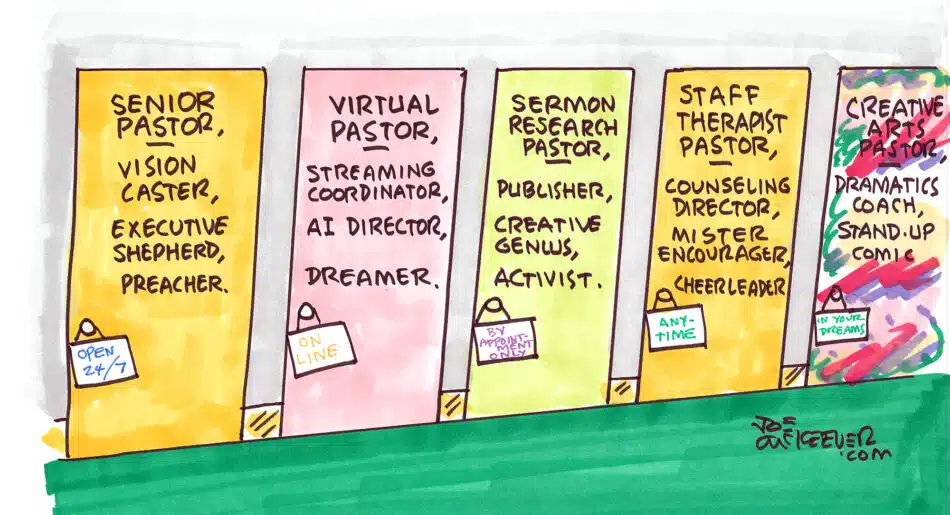 SENIOR
PASTOR,
VISION
CASTER,
EXECUTIVE
SHEPHERD,
PREACHER.
OPEN
24/7
VIRTUAL
PASTOR,
STREAMING
COORDINATOR,
AI DIRECTOR,
DREAMER.
ON
LINE
SERMON
RESEARCH
PASTOR,
PUBLISHER,
CREATIVE
GENIUS,
ACTIVIST.
BY
APPOINT-
MENT
ONLY
STAFF
THERAPIST
PASTOR,
COUNSELING
DIRECTOR,
MISTER
ENCOURAGER,
CHEERLEADER
ANY-
TIME
CREATIVE
ARTS
PASTOR,
DRAMATICS
COACH,
STAND-UP
COMIC
IN YOUR
DREAMS
JOE
MCKEEVER
.COM